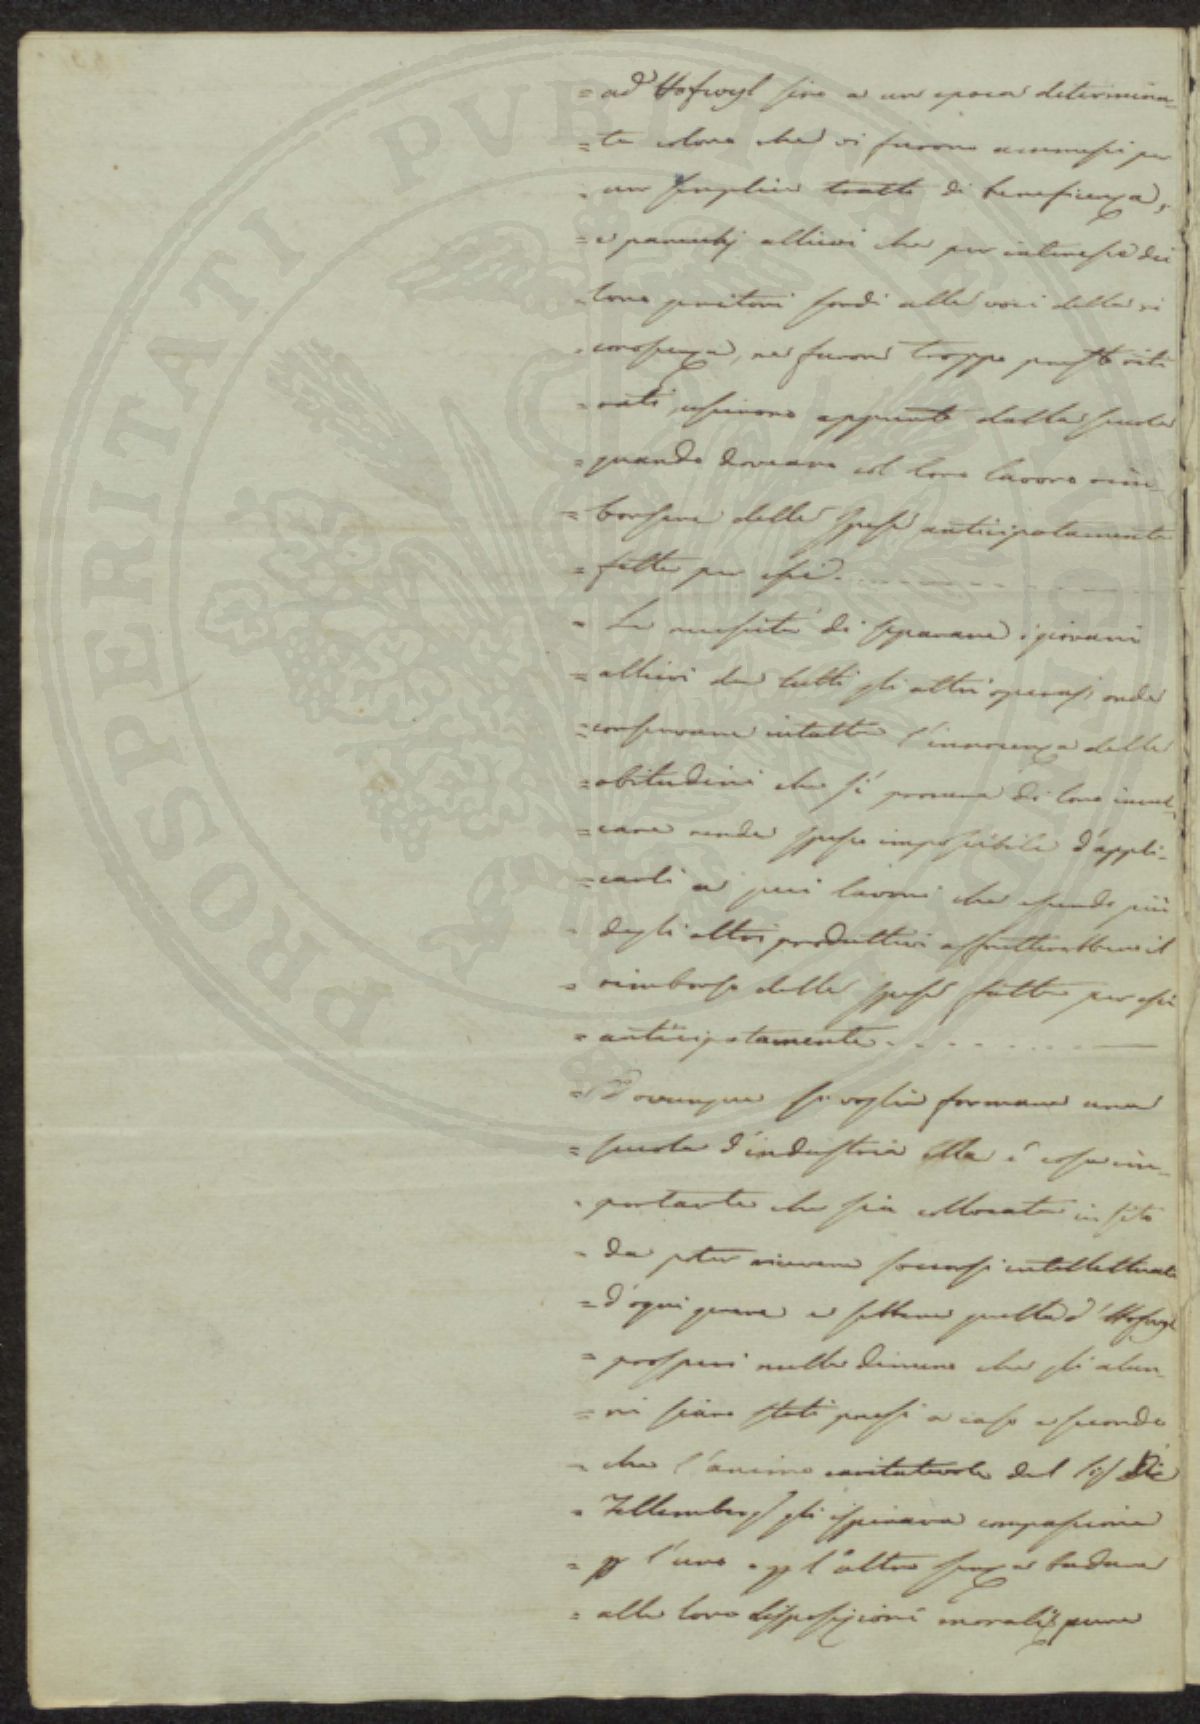 = ad Hofwyl sino a un epoca determina-
= te coloro che vi furono ammessi per
= un semplice tratto di beneficenza,
= e parecchj allievi che per interesse dei
= loro genitori sordi alle voci della ri
= conoscenza, ne furono troppo presto riti
= rati, uscirono appunto dalla scuola
= quando doveano col loro lavoro rim-
= borsare delle spese anticipatamente
= fatte per essi.
= La necessità di separare i giovani
= allievi da tutti gli altri operaj, onde
= conservare intatta l'innocenza delle
= abitudini che si procura di loro incul-
= care rende spesso impossibile d'appli-
= carli a quei lavori che essendo più
= degli altri produttivi affretterebbero il
= rimborso delle spese fatte per essi
= anticipatamente.
= Dovunque si voglia formare una
= scuola d'industria ella è cosa im-
= portante che sia collocata in sito
= da poter ricevere soccorsi intellettuali
= d'ogni genere e sebbene quella d'Hofwyl
= prosperi nulla dimeno che gli alun-
= ni siano stati presi a caso e secondo
= che l'animo caritatevole del Sig De
= Fellemberg gli ispirava compassione
= p l'uno o p l'altro senza badare
= alle loro disposizioni morali, pure
PROSPERITATI PVBLICAE